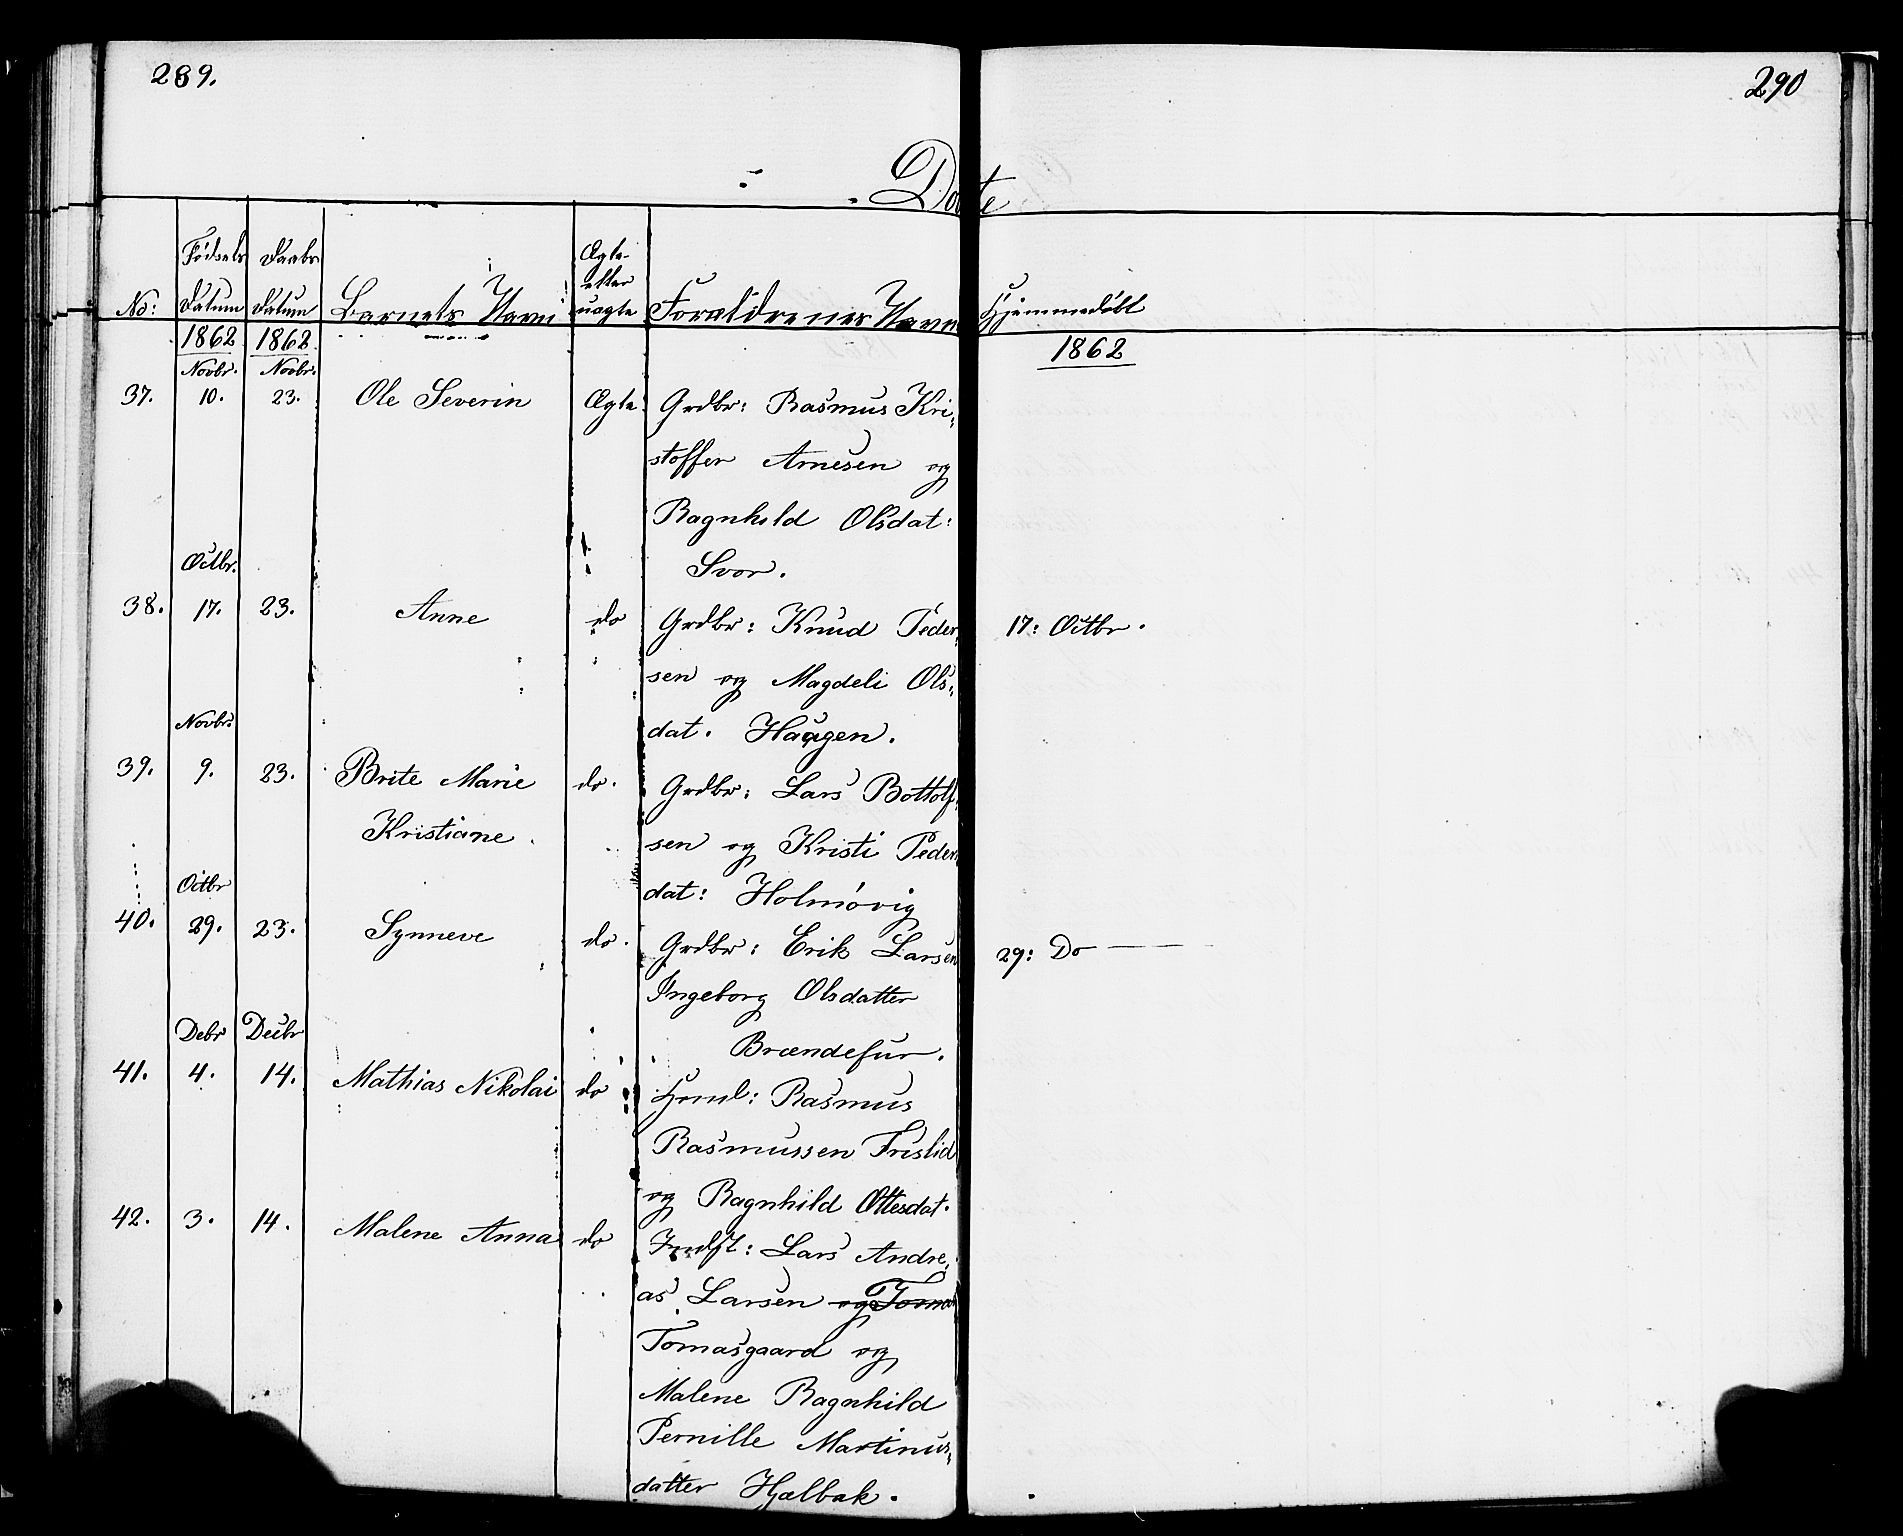 289.
290
Døbte
No:
Fødsels
Datum
Daabs
Datum
Barnets Navn
Ægte
eller
uægte
Forældrenes Navn
Hjemmedøbt
1862
1862
1862
Novbr.
Novbr.
37. 10. 23. Ole Severin Ægte Grdbr: Rasmus Kri=
stoffer Arnesen og
Ragnhild Olsdat:
Svor.
Octbr.
38. 17. 23. Anne do Grdbr: Knud Peder= 17: Octbr.
sen og Magdeli Ols=
dat. Haugen.
Novbr:
39. 9. 23. Brite Marie do. Grdbr: Lars Bottolf=
Kristiane. sen og Kristi Peders
dat: Holmøvig
Octbr
40. 29. 23. Synneve do. Grdbr: Erik Larsen 29: Do —
Ingeborg Olsdatter
Brændefur.
Debr Decbr
41. 4. 14. Mathias Nikolai do Hsml: Rasmus
Rasmussen Frislid
og Ragnhild Ottesdat.
42. 3. 14. Malene Anna do Indst: Lars Andre=
as Larsen og Tomas
Tomasgaard og
Malene Ragnhild
Pernille Martinus=
datter Hjælbak.